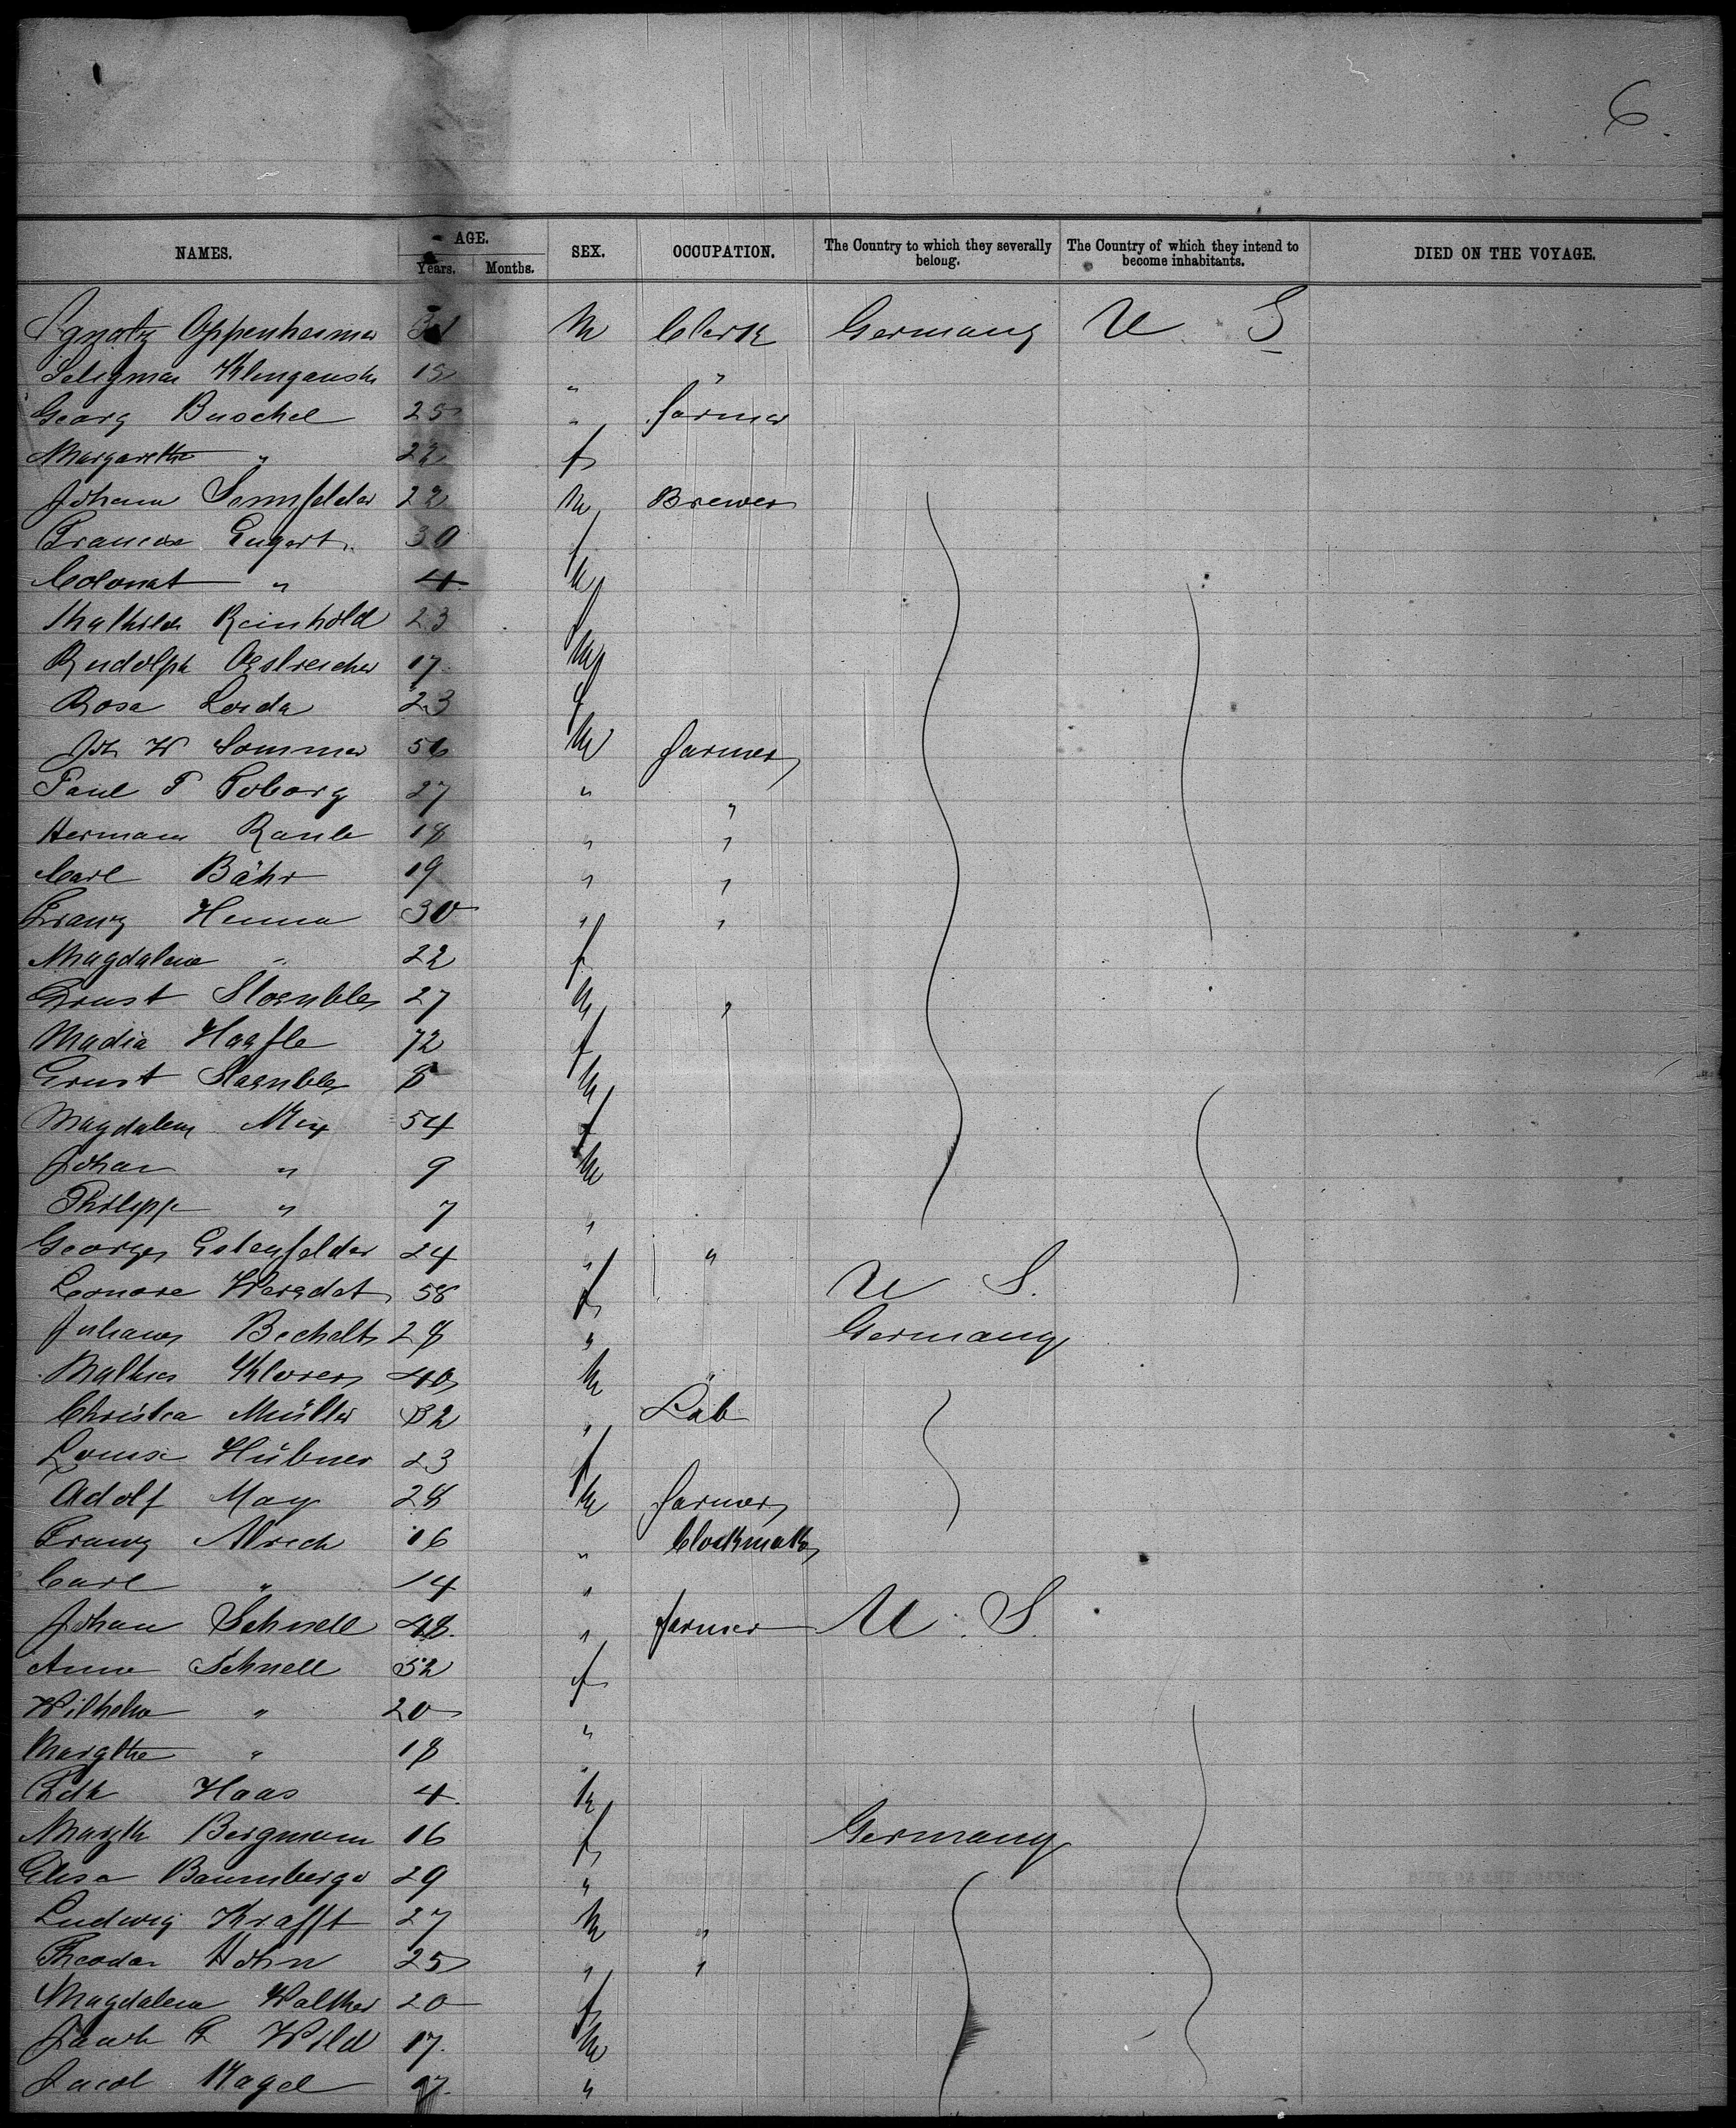 6.
NAMES. AGE. Years. Months. SEX. OCCUPATION. The Country to which they severally belong. The Country of which they intend to become inhabitants. DIED ON THE VOYAGE.
Ignatz Oppenheimer M Clerk Germany U S
Seligman 19 " "
Georg Buschel 25 " farmer
Margarethe " 22 f
Johann Sennfelder 22 M Brewer
Engert 30 f
Colonat " 4 M
Mathilde Reinhold 23 f
Rudolph Oestreicher 17 M
Rosa 23 f
Joh W Sommer 56 M farmer
Paul F 27 " "
Hermann Raule 18 " "
Carl Bähr 19 " "
Franz Henna 30 " "
Magdalena " 22 f
Ernst 27 M "
Madia Haefle 72 f
Ernst 8 M
Magdalena 54 f
Johan " 9 M
Philipp " 7 "
Georges Estenfelder 24 " "
Leonore 58 f U S.
Bechelt 28 " Germany
Mathias 40 M "
Christia Müller 32 " Lab
Louise Hübner 23 f
Adolf May 28 M farmer
Franz 16 " Clockmaker
Carl " 14 "
Johan Schnell 48 " farmer U. S.
Anna Schnell 52 f
Wilhelm " 20 "
Margthe " 18 "
Haas 4 M
Margth Bergmann 16 f Germany
Elisa Baumberger 29 "
Ludwig Krafft 27 M "
Theodor Hohn 25 " "
Magdalena Walther 20 f
Wild 17 M
Jacob Nagel 17 "